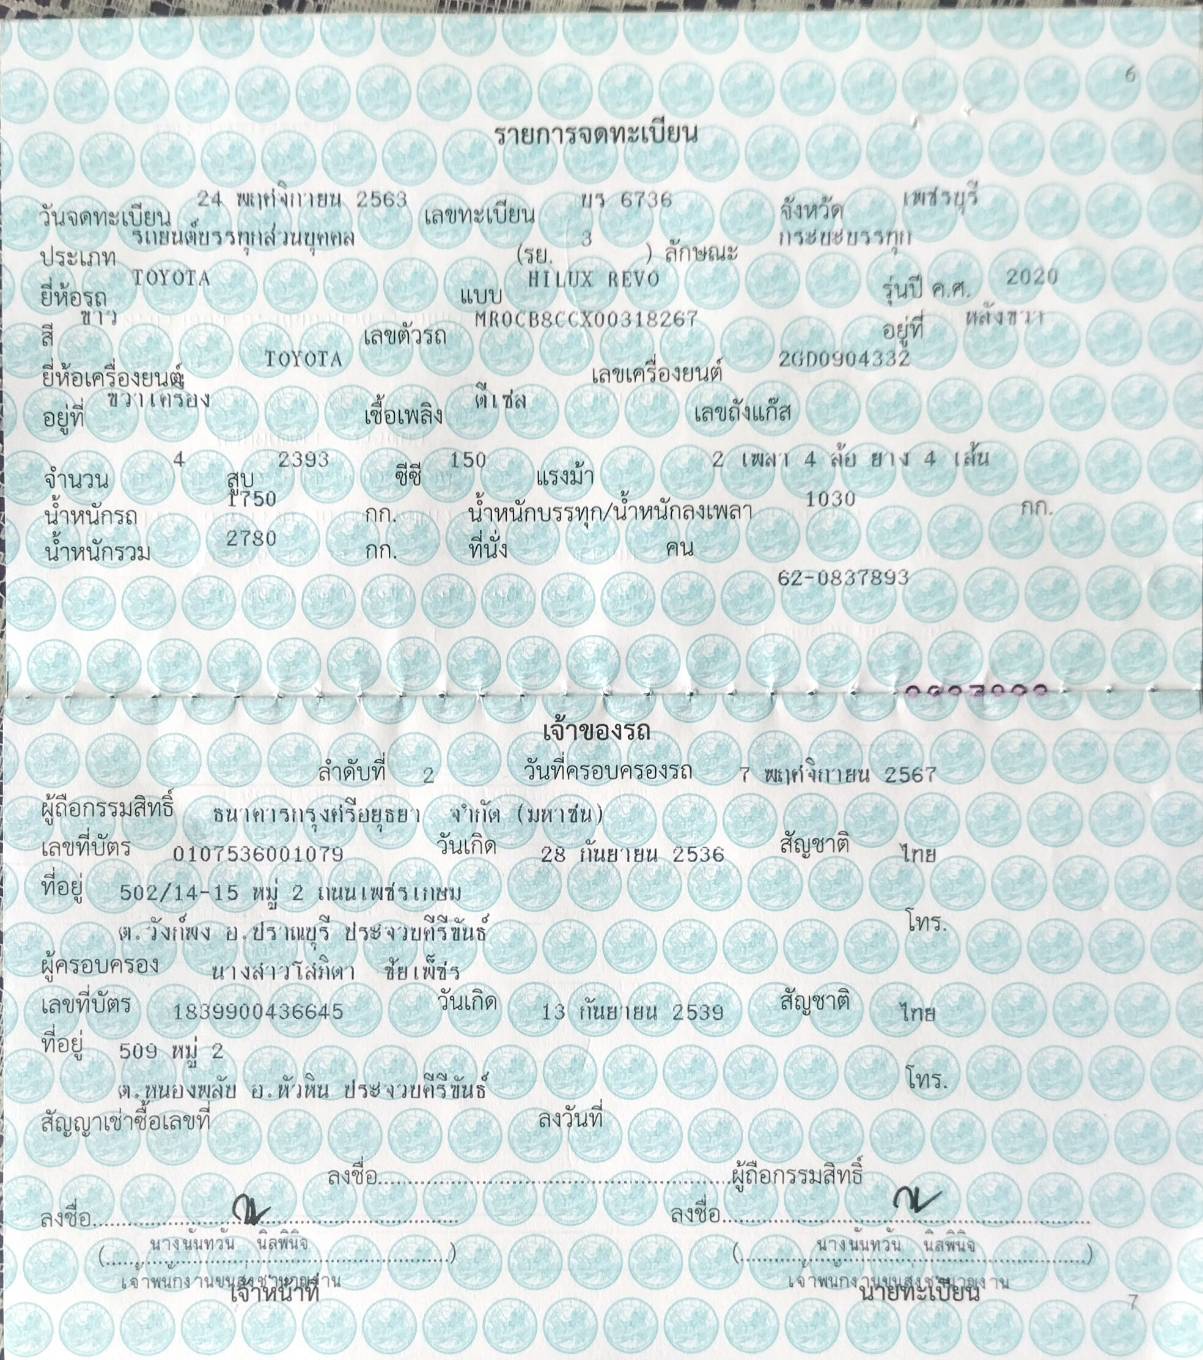 6
รายการจดทะเบียน
วันจดทะเบียน 24 พฤศจิกายน 2563 เลขทะเบียน บร 6736 จังหวัด เพชรบุรี
ประเภท รถยนต์บรรทุกส่วนบุคคล (รย. 3 ) ลักษณะ กระบะบรรทุก
ยี่ห้อรถ TOYOTA แบบ HILUX REVO รุ่นปี ค.ศ. 2020
สี ขาว เลขตัวรถ MR0CB8CCX00318267 อยู่ที่ หลังขวา
ยี่ห้อเครื่องยนต์ TOYOTA เลขเครื่องยนต์ 2GD0904332
อยู่ที่ ขวาเครื่อง เชื้อเพลิง ดีเซล เลขถังแก๊ส
จำนวน 4 สูบ 2393 ซีซี 150 แรงม้า 2 เพลา 4 ล้อ ยาง 4 เส้น
น้ำหนักรถ 1750 กก. น้ำหนักบรรทุก/น้ำหนักลงเพลา 1030 กก.
น้ำหนักรวม 2780 กก. ที่นั่ง คน
62-0837893
เจ้าของรถ
ลำดับที่ 2 วันที่ครอบครองรถ 7 พฤศจิกายน 2567
ผู้ถือกรรมสิทธิ์ ธนาคารกรุงศรีอยุธยา จำกัด (มหาชน)
เลขที่บัตร 0107536001079 วันเกิด 28 กันยายน 2536 สัญชาติ ไทย
ที่อยู่ 502/14-15 หมู่ 2 ถนนเพชรเกษม
ต.วังก์พง อ.ปราณบุรี ประจวบคีรีขันธ์ โทร.
ผู้ครอบครอง นางสาวโสภิตา ชัยเพ็ชร
เลขที่บัตร 1839900436645 วันเกิด 13 กันยายน 2539 สัญชาติ ไทย
ที่อยู่ 509 หมู่ 2
ต.หนองพลับ อ.หัวหิน ประจวบคีรีขันธ์ โทร.
สัญญาเช่าซื้อเลขที่ ลงวันที่
ลงชื่อ....................ผู้ถือกรรมสิทธิ์
ลงชื่อ.................... ลงชื่อ....................
(นางนันทวัน นิลพินิจ) (นางนันทวัน นิลพินิจ)
เจ้าพนักงานขนส่งชำนาญงาน เจ้าพนักงานขนส่งชำนาญงาน
เจ้าหน้าที่ นายทะเบียน
7